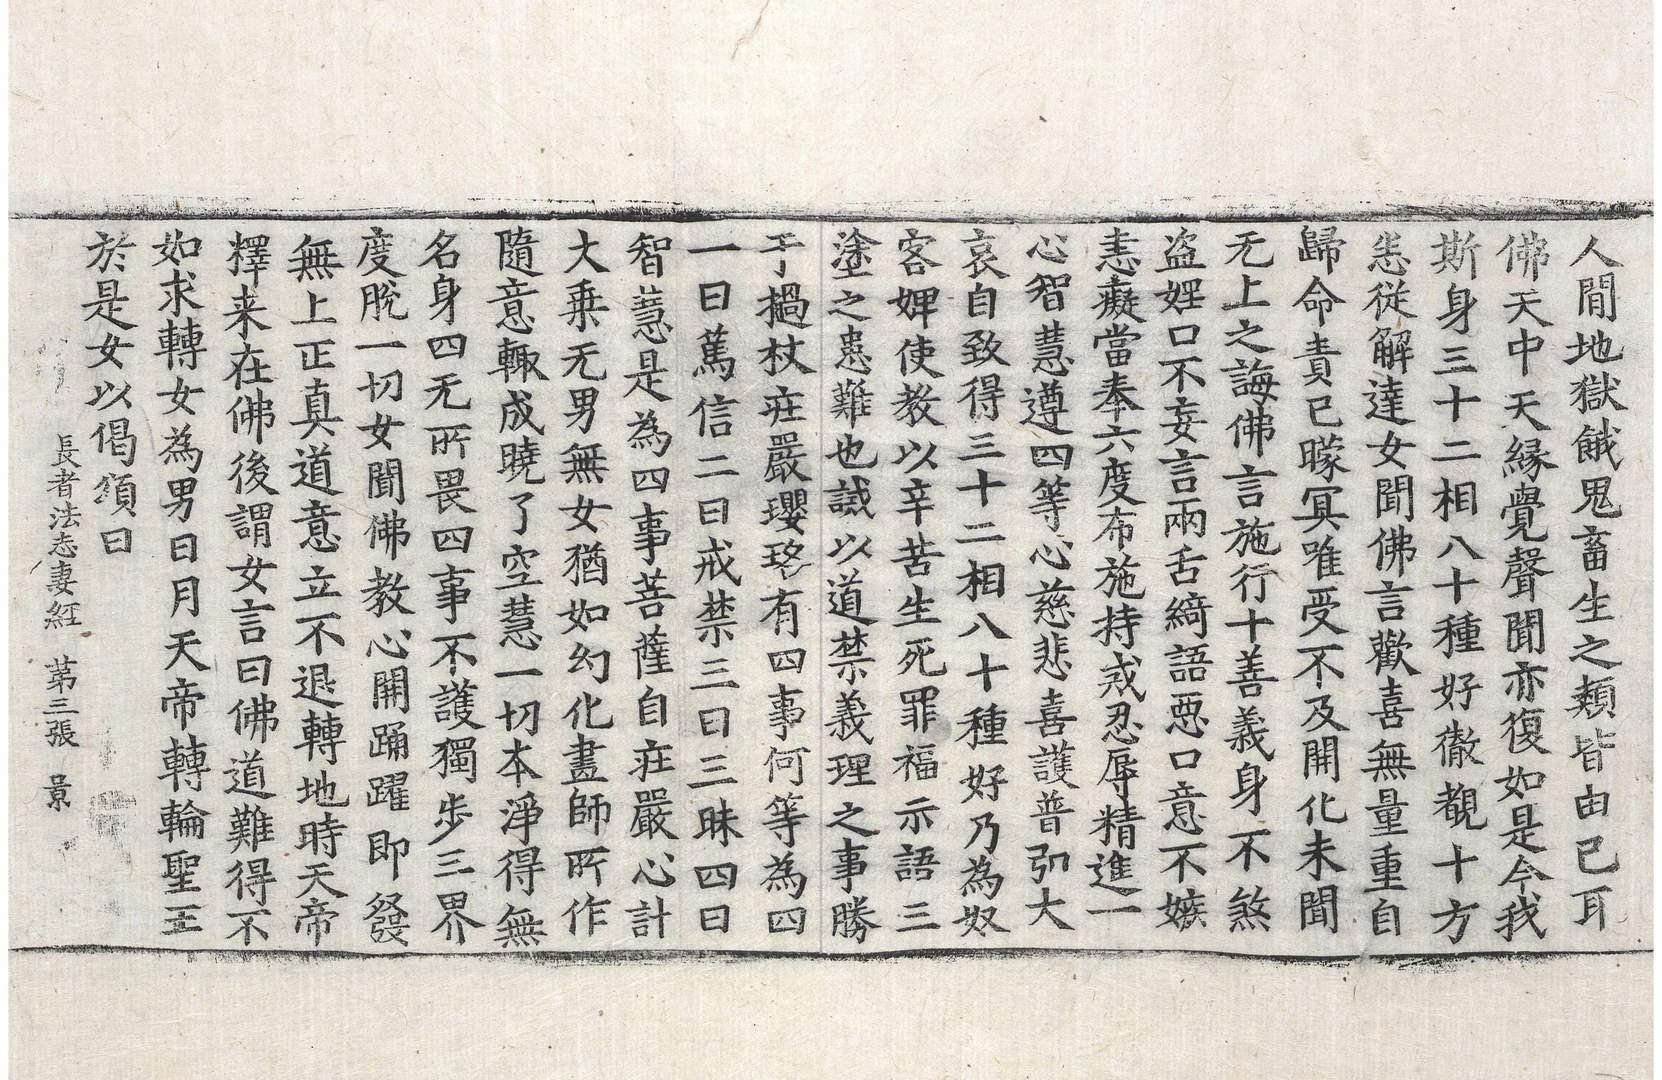 人間地獄餓鬼畜生之類皆由己耳
佛天中天緣覺聲聞亦復如是今我
斯身三十二相八十種好徹覩十方
恙從解達女聞佛言歡喜無量重自
歸命責己矇冥唯受不及開化未聞
无上之誨佛言施行十善義身不煞
盜婬口不妄言兩舌綺語惡口意不嫉
恚癡當奉六度布施持戒忍辱精進一
心智慧遵四等心慈悲喜護普弘大
哀自致得三十二相八十種好乃為奴
客婢使教以辛苦生死罪福示語三
塗之患難也誡以道禁義理之事勝
于撾杖莊嚴瓔珞有四事何等為四
一曰篤信二曰戒禁三曰三昧四曰
智慧是為四事菩薩自莊嚴心計
大乗无男無女猶如幻化畫師所作
隨意輙成曉了空慧一切本淨得無
名身四无所畏四事不護獨步三界
度脫一切女聞佛教心開踊躍即發
無上正真道意立不退轉地時天帝
釋来在佛後謂女言曰佛道難得不
如求轉女為男日月天帝轉輪聖王
於是女以偈頌曰
長者法志妻經 苐三張 景